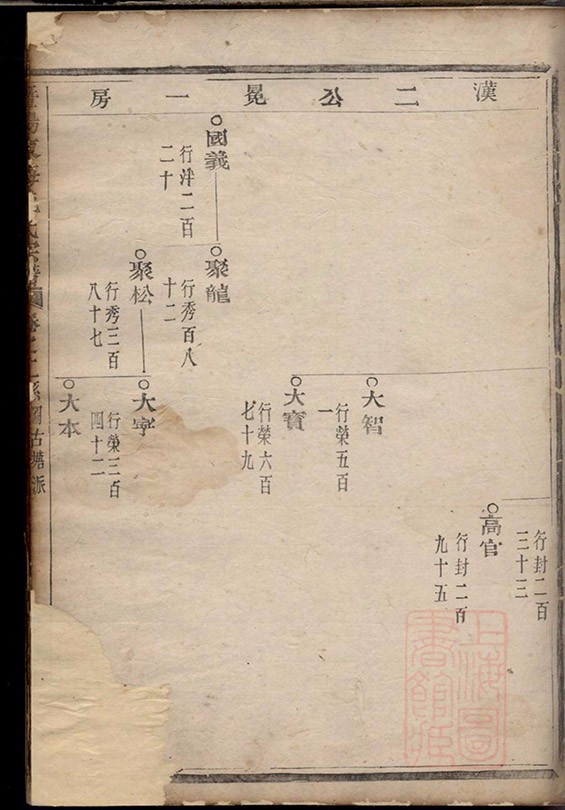 漢二公冕一房
國義
行泮二百
二十
聚龍
行秀百八
十二
聚松
行秀三百
八十七
大智
行榮五百
一
大寶
行榮六百
七十九
大字
行榮三百
四十二
大本
行封二百
三十三
高官
行封二百
九十五
古塘派
上海圖
書館藏